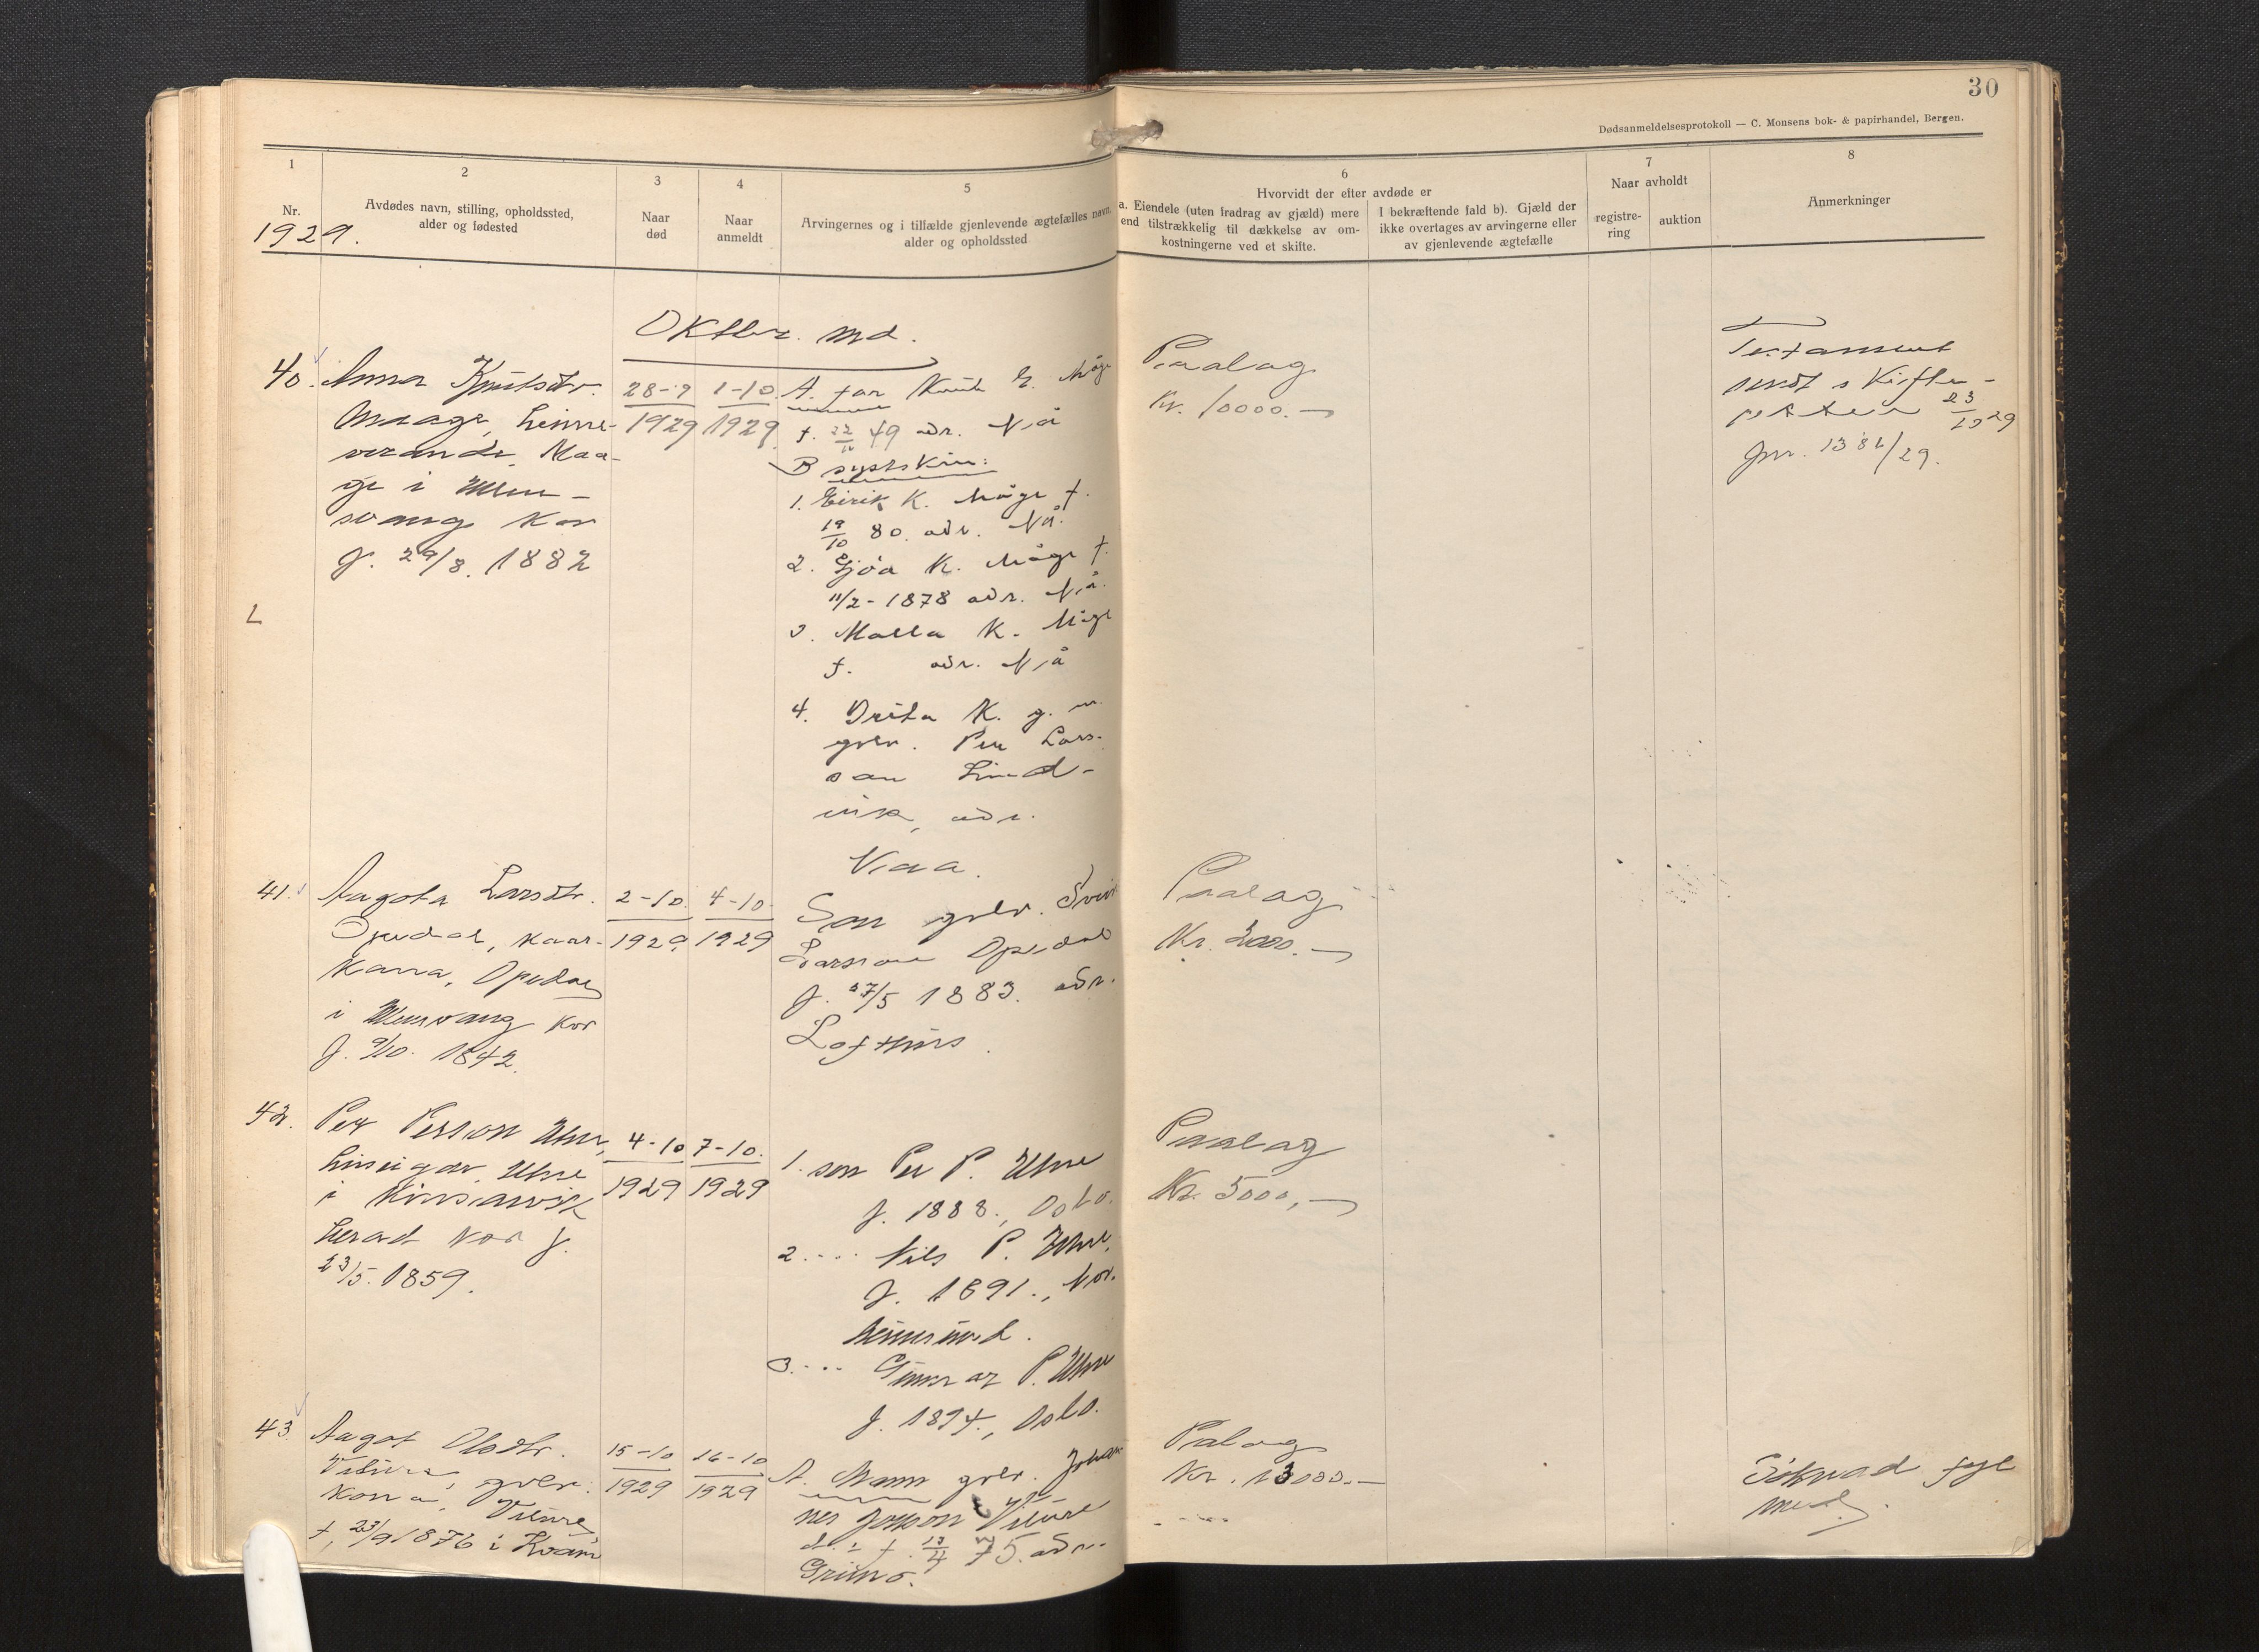 30
Dødsanmeldelsesprotokoll — C. Monsens bok- & papirhandel, Bergen.
1
2
3
4
5
6
7
8
Nr.
Avdødes navn, stilling, opholdssted,
alder og fødested
Naar
død
Naar
anmeldt
Arvingernes og i tilfælde gjenlevende ægtefælles navn,
alder og opholdssted
Hvorvidt der efter avdøde er
a. Eiendele (uten fradrag av gjæld) mere
end tilstrækkelig til dækkelse av om-
kostningerne ved et skifte.
I bekræftende fald b). Gjæld der
ikke overtages av arvingerne eller
av gjenlevende ægtefælle
Naar avholdt
registre-
ring
auktion
Anmerkninger
1929.
Oktbr. md.
40. Anna Knutsdtr.
Maage, heime-
verande Maa-
ge i Ullens-
vang kor
f. 29/8. 1882
28-9
1929
1-10.
1929
A. far Knut E. Måge
f. 22/12 49 adr. Nå
B systkin:
1. Eirik K. Måge f.
19/10 80. adr. Nå.
2. Gjøa K. Måge f.
11/2-1878 adr. Nå.
3. Malla K. Måge
f. adr. Nå
4. Brita K. g. m.
gbr. Per Lars-
son Lind-
vik, adr.
Naa.
Paalag
Kr. 10000.-
Testament
sendt skifte-
retten 23/10 29
Jnr. 1382/29.
L
41. Aagota Larsdtr.
Opedal, kaar-
kona, Opedal
i Ullensvang kor
f. 9/10. 1842.
2-10.
1929
4-10.
1929
Son gbr.
Larsson Opedal
f. 27/5 1883. adr.
Lofthus.
Paalag
Kr. 2000.-
42. Per Person Utne,
Utne
i Kinsarvik
herad kor f.
23/5. 1859.
4-10
1929
7-10.
1929
1. son Per P. Utne
f. 1888., Oslo.
2. .... Nils P. Utne,
f. 1891., Nor.
heimsund.
3. ... Gunnar P. Utne
f. 1894., Oslo.
Paalag
Kr. 5000,-
43. Aagot Olsdtr.
Vilure, gbr.
kona, Vilure
f. 23/9 1876 i Kvam
15-10
1929
16-10
1929
A. Mann gbr. Johan-
nes Jonson Vilure
f. 13/4 75. adr.
Grimo.
Palag
Kr. 13000.-
Söknad fyl
med.